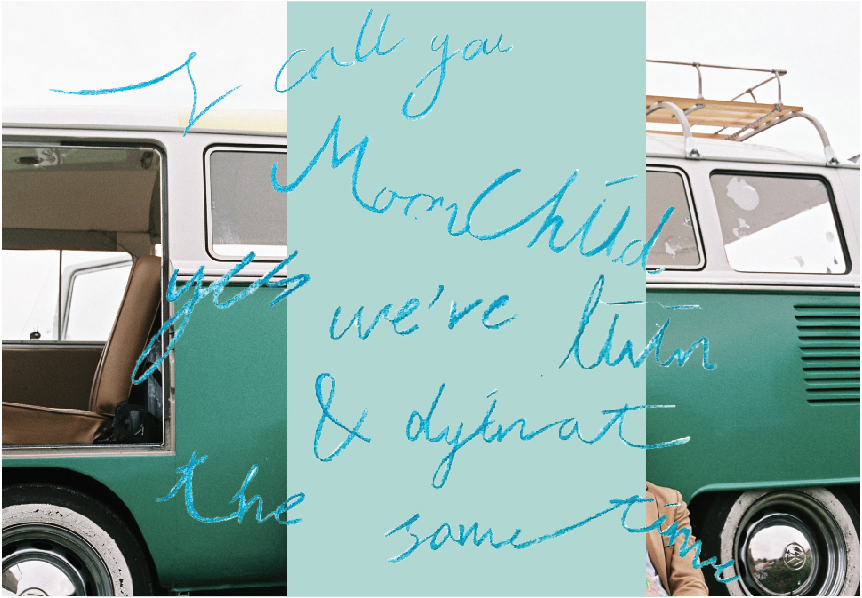 I call you
MoonChild
yes we've livin
& dyin at
the same time